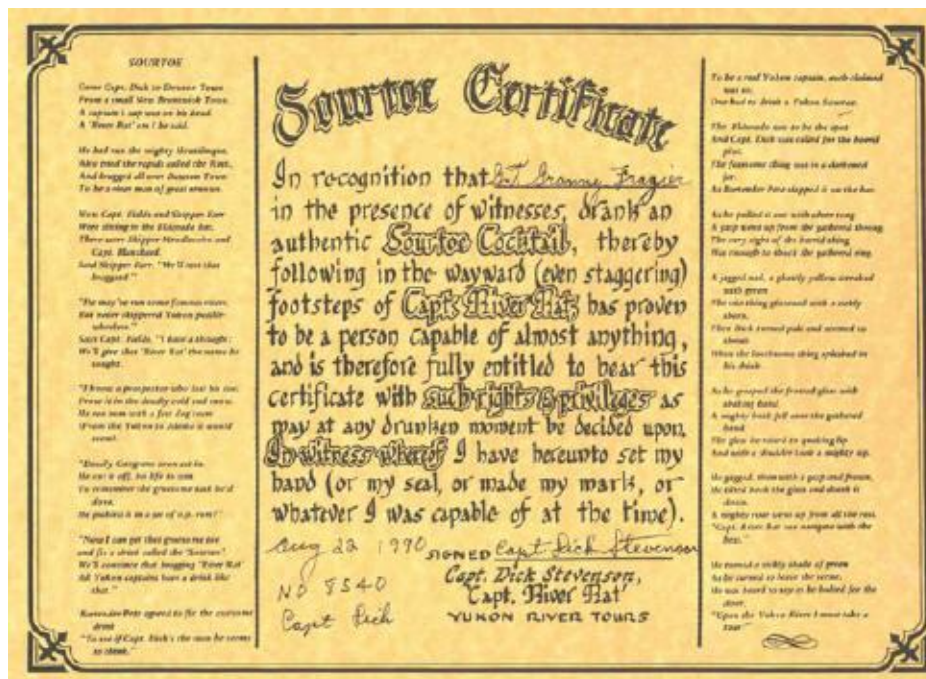 SOURTOE
Came Capt. Dick to Dawson Town
From a small New Brunswick Town.
A captain's cap was on his head.
A "River Rat" am I he said.
He had run the mighty
Also tried the rapids called the
And bragged all over Dawson Town
To be a river man of great renown.
Now Capt. Fields and Skipper Farr
Were sitting in the Eldorado bar.
There were Skipper and
Capt. Blanchard.
Said Skipper Farr, "We'll test that
braggard."
"He may've run some famous rivers
But never skippered Yukon paddle-
wheelers."
Says Capt. Fields, "I have a thought:
We'll give that 'River Rat' the name he
sought.
"I know a prospector who lost his toe.
Froze it in the deadly cold and snow.
He ran some with a fast dog team
(From the Yukon to it would
seem).
"Deadly Gangrene soon set in.
He cut it off, his life to save
To remember the gruesome task he'd
done,
He pickled it in a jar of o.p. rum!"
"Now I can get that gruesome toe
and fix a drink called the 'Sourtoe'.
We'll convince that bragging 'River Rat'
All Yukon captains have a drink like
that."
Bartender Pete agreed to fix the
drink
"To see if Capt. Dick's the man he seems
to think."
Sourtoe Certificate
In recognition that G.T. Granny Frazier
in the presence of witnesses, drank an
authentic Sourtoe Cocktail, thereby
following in the wayward (even staggering)
footsteps of Capt. River Rat, has proven
to be a person capable of almost anything,
and is therefore fully entitled to bear this
certificate with such rights & privileges as
may at any drunken moment be decided upon.
In witness whereof I have hereunto set my
hand (or my seal, or made my mark, or
whatever I was capable of at the time).
Aug 22 1990 SIGNED Capt Dick Stevenson
Capt. Dick Stevenson,
NO 8540
Capt. 'River Rat'
Capt Dick
YUKON RIVER TOURS
To be a real Yukon captain, each claimed
was so,
One had to drink a Yukon Sourtoe.
The Eldorado was to be the spot
And Capt. Dick was called for the horrid
plot.
The fearsome thing was in a darkened
jar.
As Bartender Pete slapped it on the bar.
As he pulled it out with silver tong
A gasp went up from the gathered throng.
The very sight of the horrid thing
Was enough to shock the gathered ring.
A jagged nail, a ghastly yellow streaked
with green
The vile thing glistened with a
sheen.
Then Dick turned pale and seemed to
shrink
When the loathsome thing splashed in
his drink.
As he grasped the frosted glass with
shaking hand
A mighty hush fell over the gathered
band
The glass he raised to quaking lip
And with a shudder took a mighty sip.
He gagged, then with a gasp and frown,
He tilted back the glass and drank it
down.
A mighty roar went up from all the rest.
"Capt. River Rat can navigate with the
best."
He turned a sickly shade of green
As he turned to leave the scene.
He was heard to say as he bolted for the
door,
"Upon the Yukon River I must take a
tour"